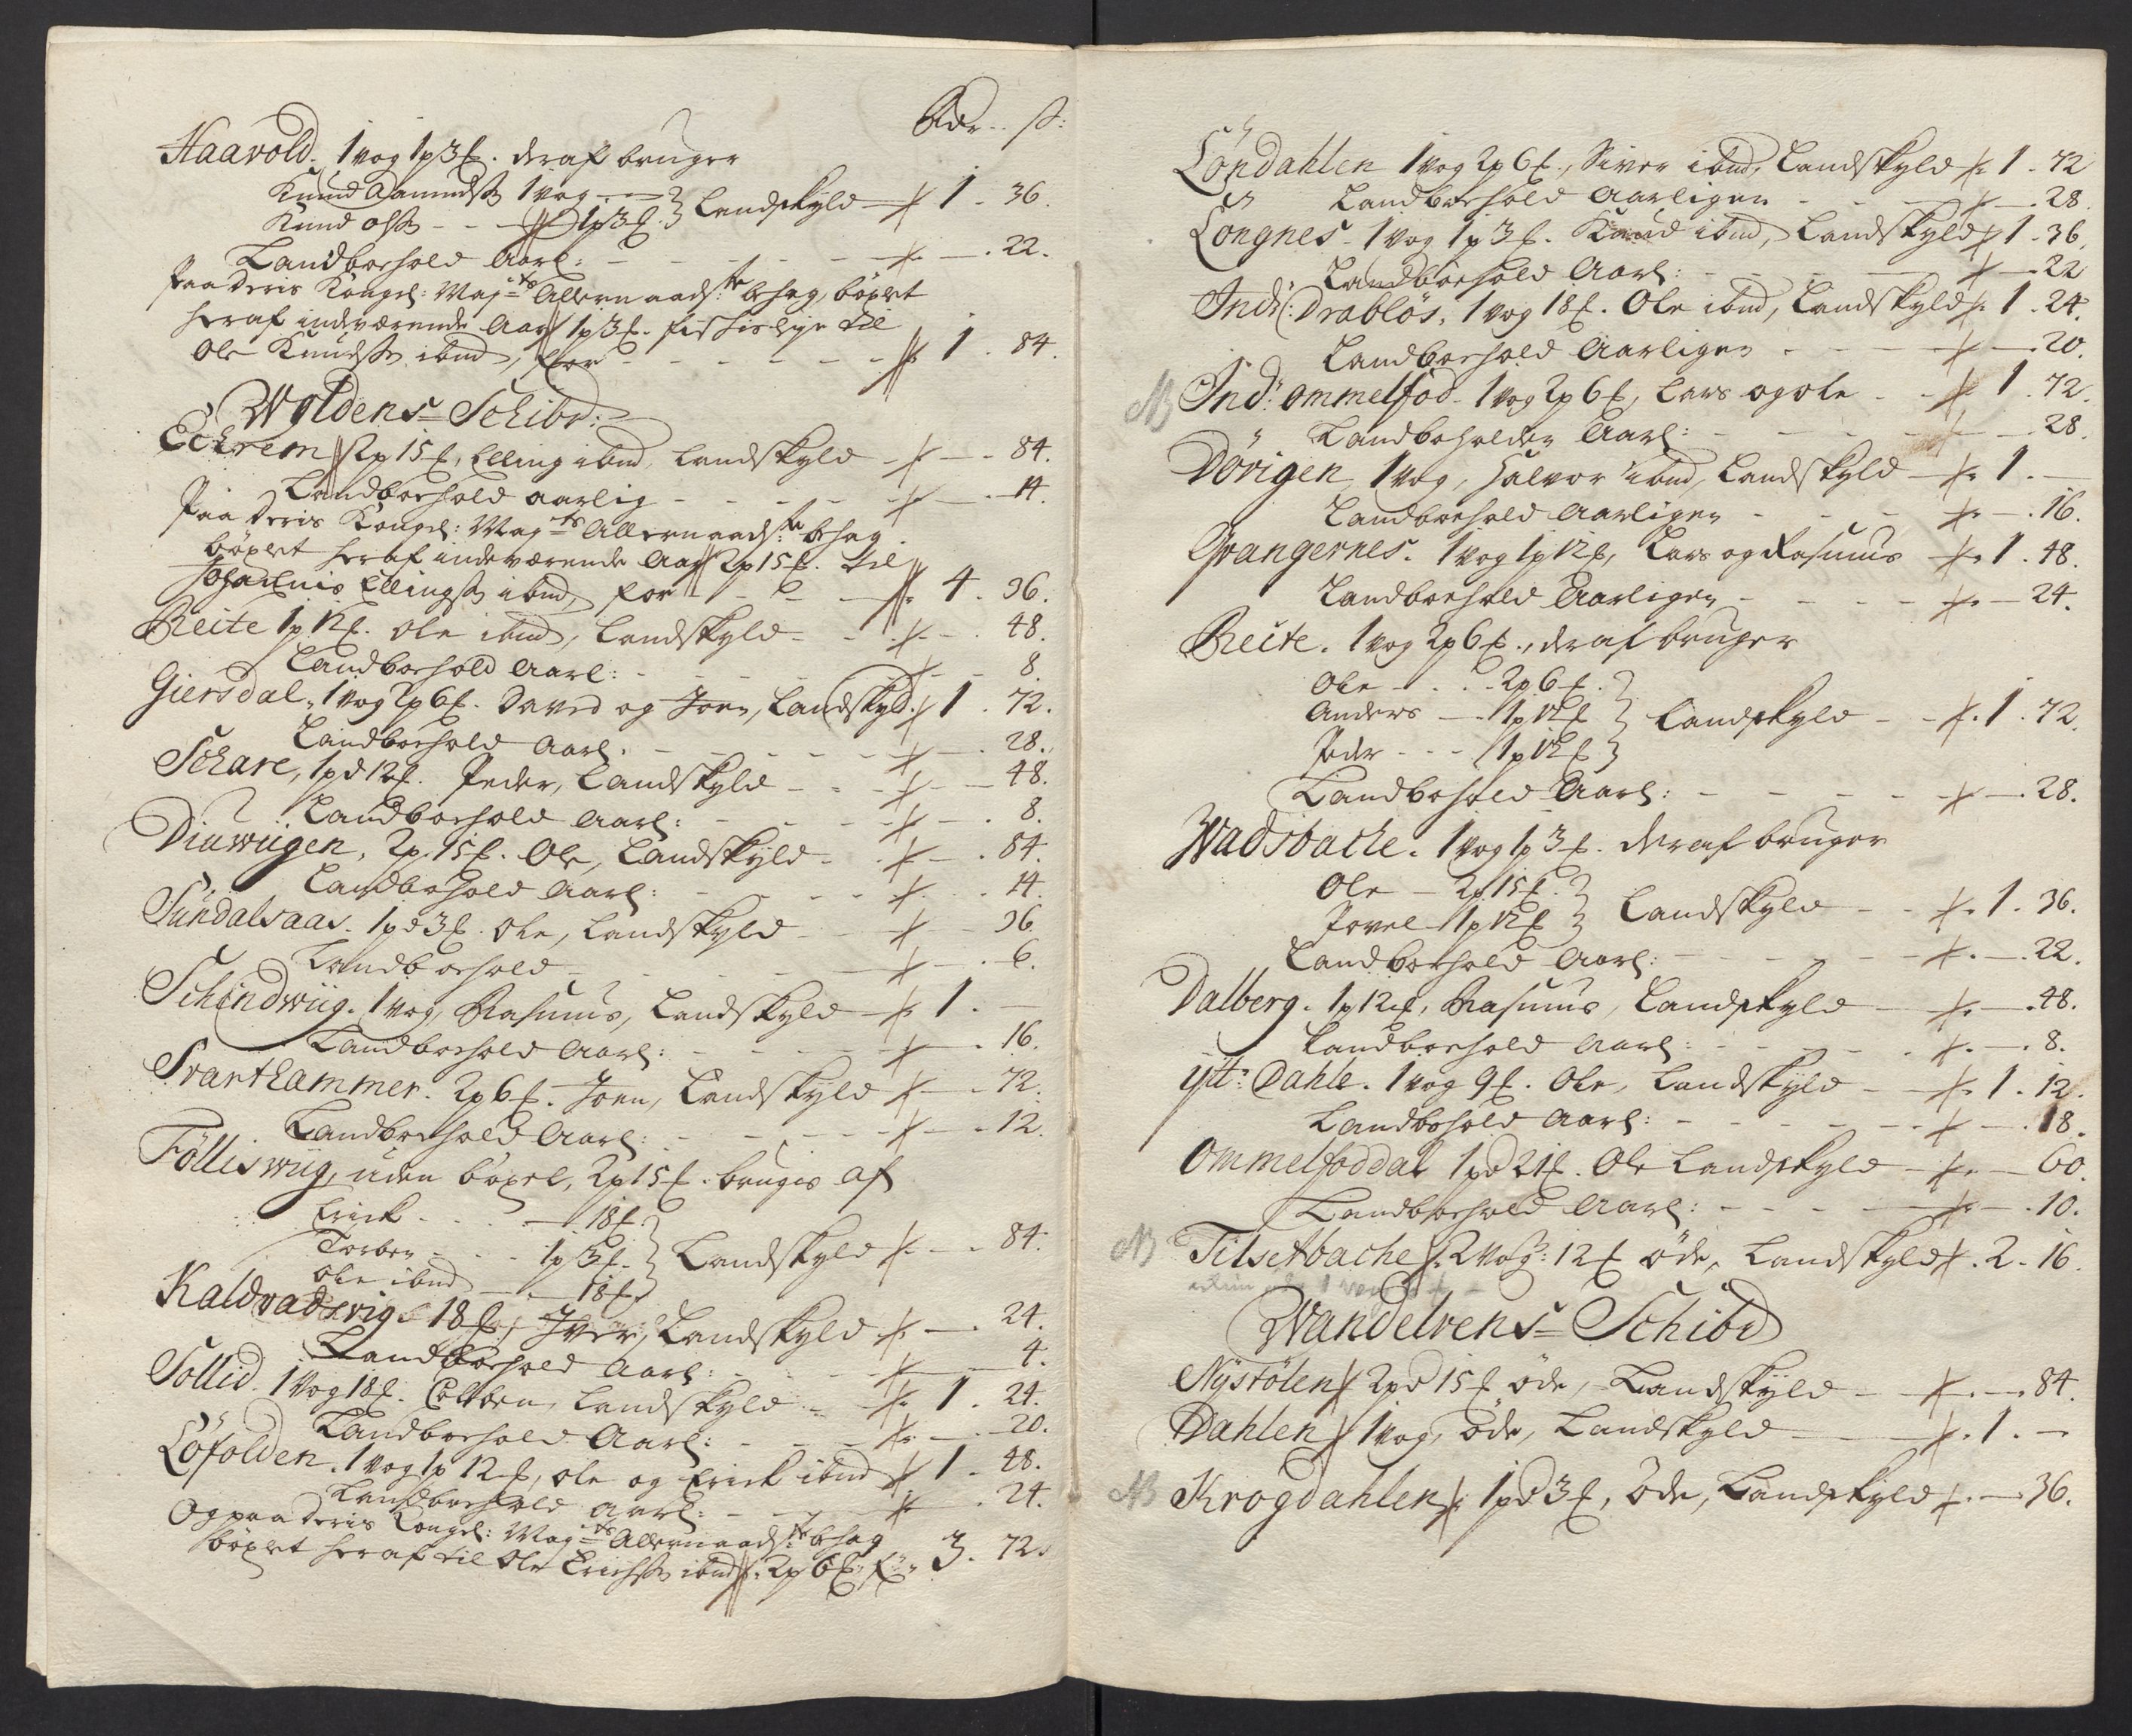 Rdr. ß:
Haavold. 1 vog 1p 3℔. deraf bruger
Knud Aamundß. 1 vog
Knud olß. - - 1p 3℔. } Landskyld - 1 - 36.
Landboehold Aarl: - 22.
Paa deris Kongel: Maj.ts Allernaads:te behag, böxlet
heraf indeværende Aar 1p 3℔.
Ole Knudß. ibnd, for - - - 1 - 84.
Woldens = Schibr:
Eckrem 2p 15℔, Elling ibnd, Landskyld - - 84.
Landboehold aarlig - - 14.
Paa deris Kongel: Maj.ts Allernaads:te behag
böxlet heraf indeværende Aar 2p 15℔. til
Johannis Ellingß. ibnd, for - 4 - 36.
Reite 1p 12℔. Ole ibnd, Landskyld - - 48.
Landboehold Aarl: - - 8.
Giersdal. 1 vog 2p 6℔. David og Joen, Landskyld. 1 - 72.
Landboehold Aarl. - - 28.
Schare, 1pd 12℔. Peder, Landskyld - - 48.
Landboehold Aarl: - - 8.
Diuwiigen, 2p. 15℔. Ole, Landskyld - - 84.
Landbohold Aarl: - - 14.
Sundalsaas. 1pd 3℔. Ole, Landskyld - 36.
Landboehold - - 6.
Schindwiig. 1 vog, Rasmus, Landskyld - 1. -
Landboehold Aarl: - - 16.
Svarthammer. 2p 6℔. Joen, Landskyld - - 72.
Landboehold Aarl: - - 12.
Fölliswiig, uden böxel, 2p 15℔. brugis af
Erick - - 18℔.
Torben - - 1p 3℔. } Landskyld - - 84.
Ole ibnd - 18℔
Kaldvadsvig. 18℔, Iver, Landskyld - 24.
Landboehold Aarl: - - 4.
Sollid. 1 Vog 18℔. Colben, Landskyld - 1. 24.
Landboehold Aarl: - - 20.
Löfolden. 1 vog 1p 12℔, ole og Erick ibnd 1 - 48.
Landboehold Aarl: - - 24.
Og paa deris Kongel: Maj.ts Allernaads:te behag
böxlet heraf til Ole Erichß. ibnd. 2p 6℔, f:r 3. 72.
Löndahlen 1 vog 2p 6℔, Siver ibnd, Landskyld 1 - 72
Landboehold Aarligen - - 28.
Löngnes - 1 vog 1p 3℔. Knud ibnd, Landskyld 1 - 36.
Landboehold Aarl: - - 22
Indr: Drablös. 1 vog 18℔. Ole ibnd, Landskyld 1 . 24.
Landboehold Aarligen - - 20.
NB Ind: ommelfod - 1 vog 2p 6℔, Lars og ole - 1. 72.
Landboholden Aarl: - - 28.
Dövigen 1 vog, Halvor ibnd, Landskyld - 1. -
Landboehold Aarligen - - 16.
Qvangernes. 1 vog 1p 12℔, Lars og Rasmus - 1. 48.
Landboehold Aarligen - - 24.
Reite. 1 vog 2p 6℔., deraf bruger
Ole - - 2p 6℔.
Anders - 1p 12℔ } Landskyld - - 1. 72.
Peder - - 1p 12℔
Landbohold Aarl: - - 28.
Wadsbache. 1 vog 1p 3℔. deraf bruger
Ole - 2p 15℔.
Povel 1p 12℔ } Landskyld - - 1. 36.
Landboehold Aarl: - - 22.
Dalberg. 1p 12℔, Rasmus, Landskyld - - 48.
Landboehold Aarl: - - 8.
ytt: Dahle. 1 vog 9℔. Ole, Landskyld - 1. 12.
Landbohold Aarl: - - 18.
Ommelfoddal 1pd 21℔. Ole Landskyld - - 60.
Landboehold Aarl: - - 10.
NB Tilsetbache. 2 Vog: 12℔ öde, Landskyld. 2. 16.
Wandelvens = Schibr
Nÿstölen 2pd 15℔ öde, Landskyld - - 84.
Dahlen 1 vog, öde, Landskyld - 1. -
NB Krogdahlen 1pd 3℔, öde, Landskyld - 36.